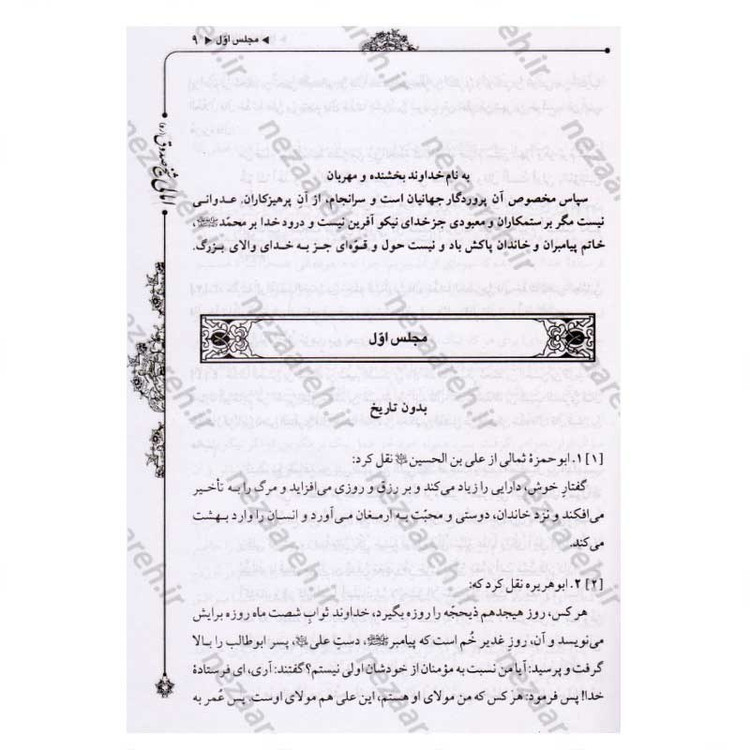 ◄ مجلس اوّل ► ۹
امالی شیخ صدوق (ره)
به نام خداوند بخشنده و مهربان
سپاس مخصوص آن پروردگار جهانیان است و سرانجام، از آن پرهیزکاران. عدوانی
نیست مگر بر ستمکاران و معبودی جز خدای نیکو آفرین نیست و درود خدا بر محمّد ﷺ،
خاتم پیامبران و خاندان پاکش باد و نیست حول و قوّه‌ای جز به خدای والای بزرگ.
مجلس اوّل
بدون تاریخ
[۱] ۱. ابو حمزهٔ ثمالی از علی بن الحسین نقل کرد:
گفتارِ خوش، دارایی را زیاد می‌کند و بر رزق و روزی می‌افزاید و مرگ را به تأخیر
می‌افکند و نزد خاندان، دوستی و محبّت به ارمغان می‌آورد و انسان را وارد بهشت
می‌کند.
[۲] ۲. ابوهریره نقل کرد که:
هر کس، روز هیجدهم ذیحجّه را روزه بگیرد، خداوند ثوابِ شصت ماه روزه برایش
می‌نویسد و آن، روزِ غدیر خُم است که پیامبر ﷺ، دستِ علی، پسر ابوطالب را بالا
گرفت و پرسید: آیا من نسبت به مؤمنان از خودشان اولی نیستم؟ گفتند: آری، ای فرستادهٔ
خدا! پس فرمود: هر کس که من مولای او هستم، این علی هم مولای اوست. پس عُمر به
nezaareh.ir